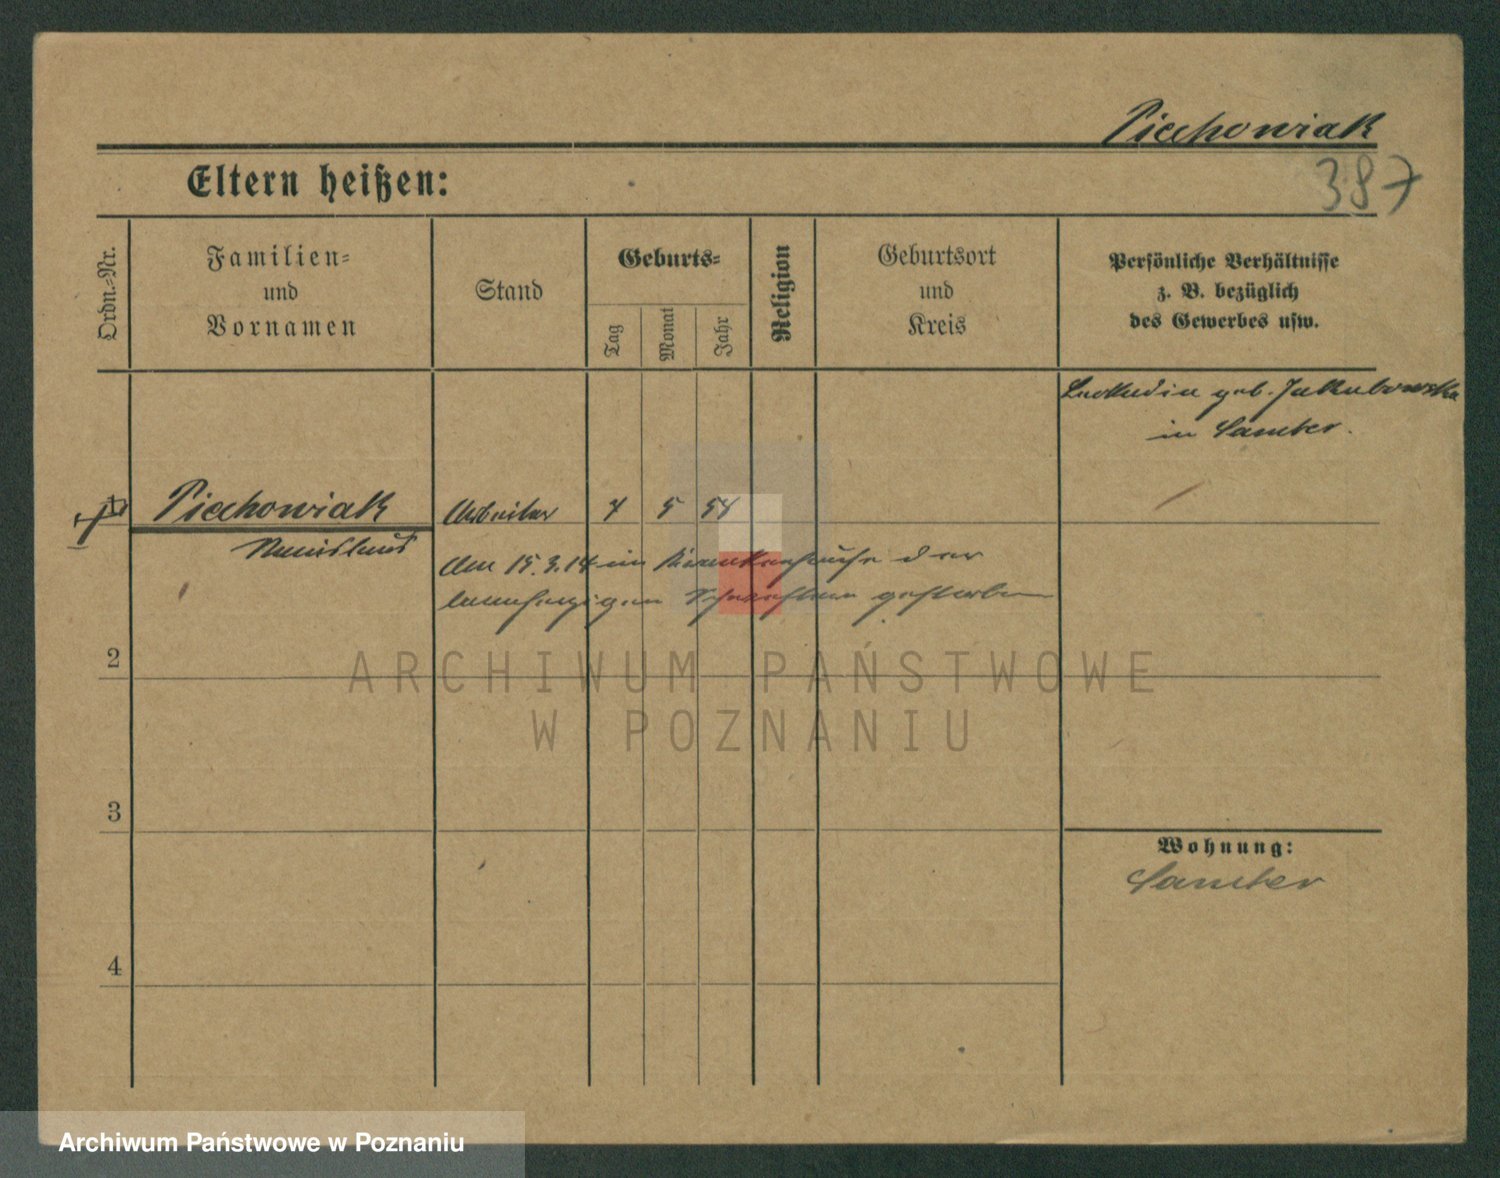 Piechowiak
387
Eltern heißen:
Ordn.-Nr.
Familien-
und
Vornamen
Stand
Geburts-
Tag
Monat
Jahr
Religion
Geburtsort
und
Kreis
Persönliche Verhältnisse
z. B. bezüglich
des Gewerbes usw.
geb. Jakubowska
in Samter.
1
Piechowiak
Arbeiter
7 5 54
Am 15.3.14 im Krankenhause der
barmherzigen Schwestern gestorben
2
ARCHIWUM PAŃSTWOWE
W POZNANIU
3
Wohnung:
Samter
4
Archiwum Państwowe w Poznaniu